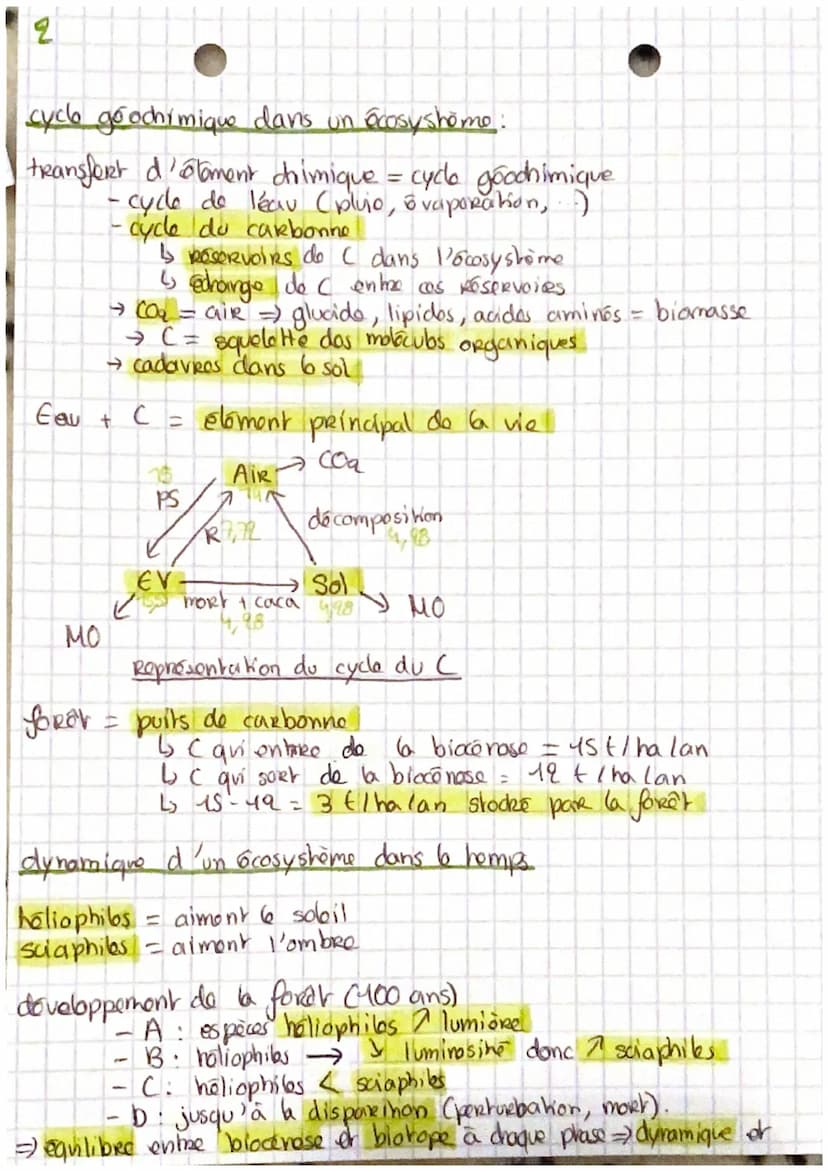 2
cycle géochimique dans un écosystème :
transfert d'élément chimique = cycle géochimique
- cycle de l'eau (pluie, évaporation, ...)
- cycle du carbonne
↳ réservoirs de C dans l'écosystème
↳ échange de C entre ces réservoirs
→ CO2 = air ⇒ glucide, lipides, acides aminés = biomasse
→ C = squelette des molécules organiques
→ cadavres dans le sol
Eau + C = élément principal de la vie
Air → CO2
PS
R 7,72
décomposition
4,98
EV
Sol
mort + caca
4,98
4,98
MO
MO
Représentation du cycle du C
forêt = puits de carbonne
↳ C qui entre de la biocénose = 15 t/ha/an
↳ C qui sort de la biocénose = 12 t/ha/an
↳ 15-12 = 3 t/ha/an stocké par la forêt
dynamique d'un écosystème dans le temps
héliophiles = aiment le soleil
sciaphiles = aiment l'ombre
développement de la forêt (100 ans)
- A : espèces héliophiles ↗ lumière
- B : héliophiles → ↘ luminosité donc ↗ sciaphiles
- C : héliophiles < sciaphiles
- D : jusqu'à la disparition (perturbation, mort).
⇒ équilibre entre biocénose et biotope à chaque phase ⇒ dynamique et